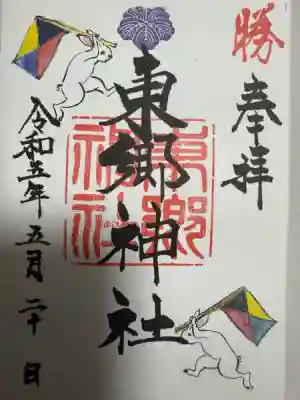 勝
奉拝
東郷神社
東郷神社
令和五年五月二十日